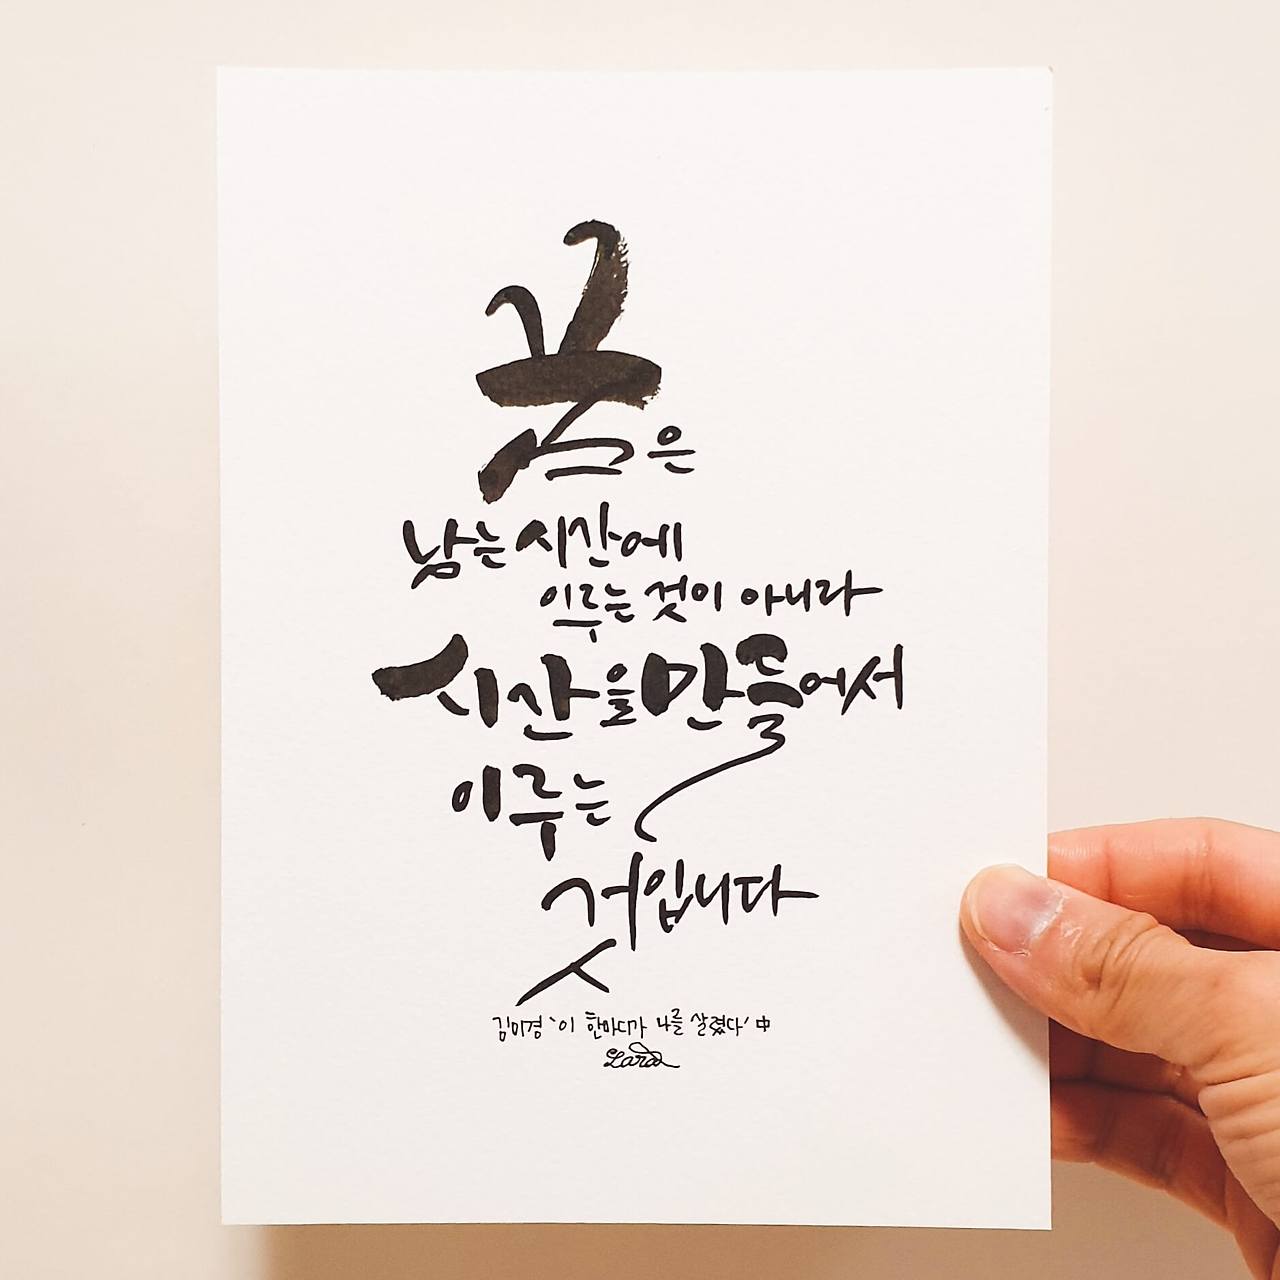 꿈은
남는 시간에
이루는 것이 아니라
시간을 만들어서
이루는
것입니다
김미경 '이 한마디가 나를 살렸다' 中
Lara